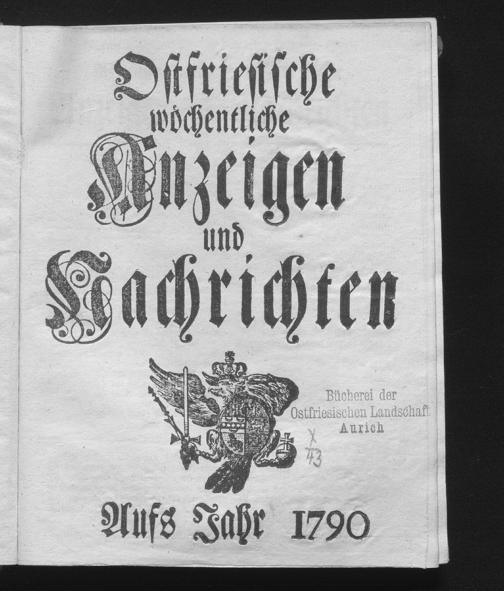 Ostfriesische
wöchentliche
Anzeigen
und
Nachrichten
Bücherei der
Ostfriesischen Landschaft
Aurich
X
43
Aufs Jahr 1790